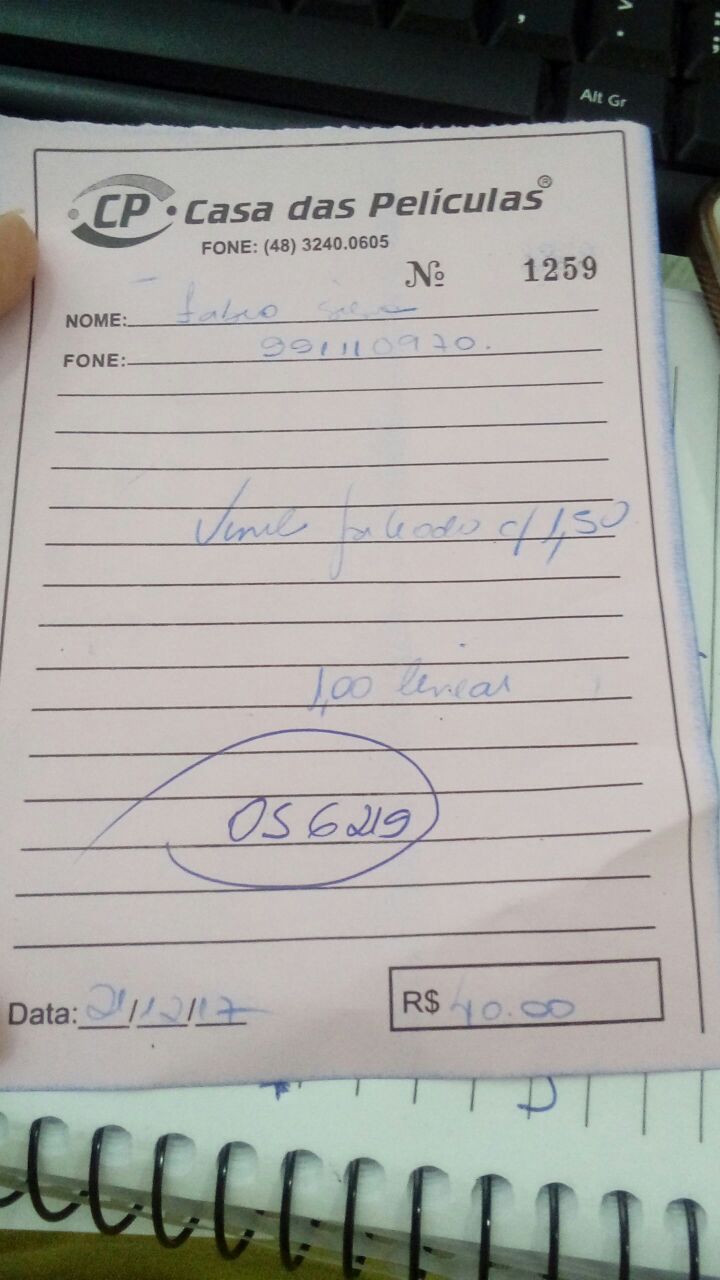 Alt Gr
CP Casa das Películas®
FONE: (48) 3240.0605
Nº 1259
NOME: Fabio Silva
FONE: 991110970.
Vinil c/ 1,50
1,00 linear
OS 6219
Data: 21/12/17
R$ 40.00